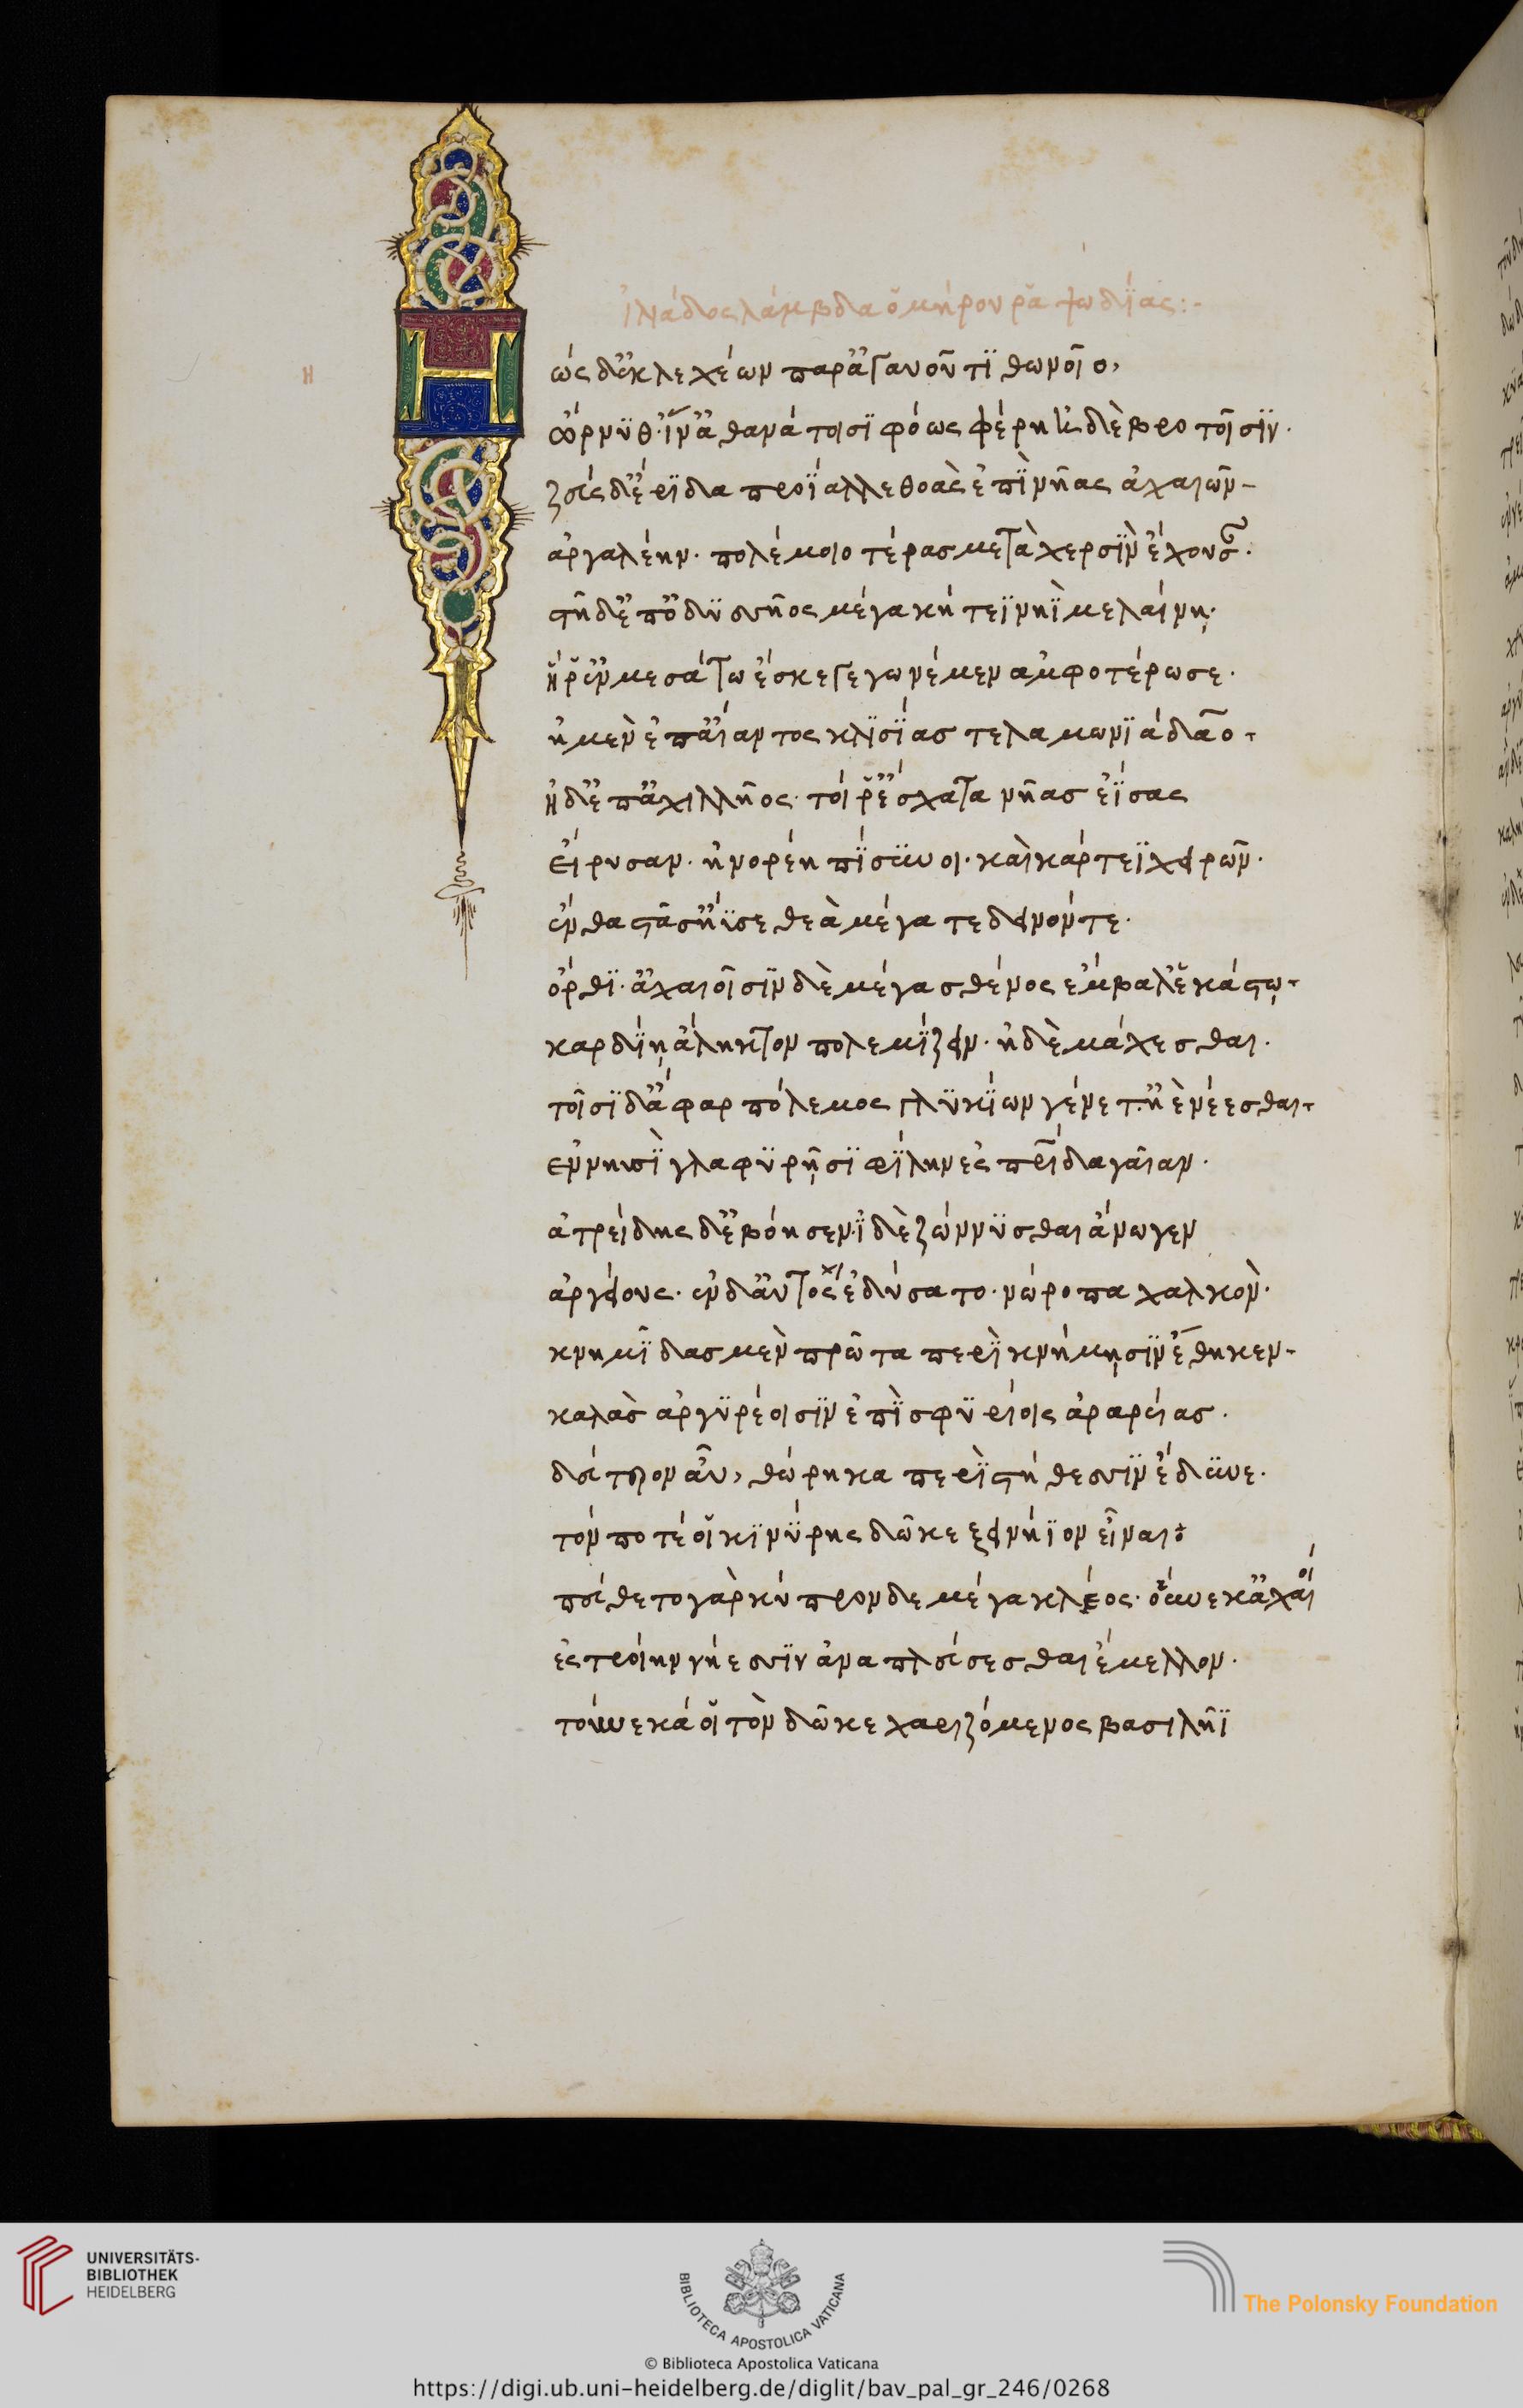 ἰλιάδος λάμβδα ὁμήρου ῥαψωδίας:-
Η
η
ὼς δ' ἐκ λεχέων παρ' ἀγαυοῦ τιθωνοῖο,
ὤρνυθ'· ἵν' ἀθανάτοισι φόως φέρη ἠδὲ βροτοῖσιν·
ζεὺς δ' ἔριδα προΐαλλε θοὰς ἐπὶ νῆας ἀχαιῶν-
ἀργαλέην· πολέμοιο τέρας μετὰ χερσὶν ἔχουσαν·
στῆ δ' ἐπ' ὀδυσσῆος μεγακήτεϊ νηῒ μελαίνῃ·
ἥ ῥ' ἐν μεσάτω ἔσκε γεγωνέμεν ἀμφοτέρωσε·
ἠμὲν ἐπ' αἴαντος κλισίας τελαμωνιάδαο·
ἠδ' ἐπ' ἀχιλλῆος· τοί ῥ' ἔσχατα νῆας ἐΐσας
εἴρυσαν· ἠνορέη πίσυνοι· καὶ κάρτεϊ χειρῶν·
ἔνθα στᾶσ' ἤϋσε θεὰ μέγα τε δεινόν τε·
ὄρθι'· ἀχαιοῖσιν δὲ μέγα σθένος ἔμβαλ' ἑκάστῳ·
καρδίῃ ἄληκτον πολεμίζειν· ἠδὲ μάχεσθαι·
τοῖσι δ' ἄφαρ πόλεμος γλυκίων γένετ' ἠὲ νέεσθαι·
ἐν νηυσὶ γλαφυρῇσι φίλην ἐς πατρίδα γαῖαν·
ἀτρείδης δ' ἐβόησεν· ἰδὲ ζώννυσθαι ἄνωγεν
ἀργείους· ἐν δ' αὐτὸς ἐδύσατο· νώροπα χαλκὸν·
κνημῖδας μὲν πρῶτα περὶ κνήμῃσιν ἔθηκεν·
καλὰς ἀργυρέοισιν ἐπισφυρίοις ἀραρείας·
δεύτερον αὖ, θώρηκα περὶ στήθεσσιν ἔδυνε·
τόν ποτέ οἱ κινύρης δῶκε ξεινήϊον εἶναι:
πεύθετο γὰρ κύπρονδε μέγα κλέος· οὕνεκ' ἀχαιοί
ἐς τροίην νήεσσιν ἀναπλεύσεσθαι ἔμελλον·
τούνεκά οἱ τὸν δῶκε χαριζόμενος βασιλῆϊ
UNIVERSITÄTS-
BIBLIOTHEK
HEIDELBERG
BIBLIOTECA APOSTOLICA VATICANA
The Polonsky Foundation
© Biblioteca Apostolica Vaticana
https://digi.ub.uni-heidelberg.de/diglit/bav_pal_gr_246/0268